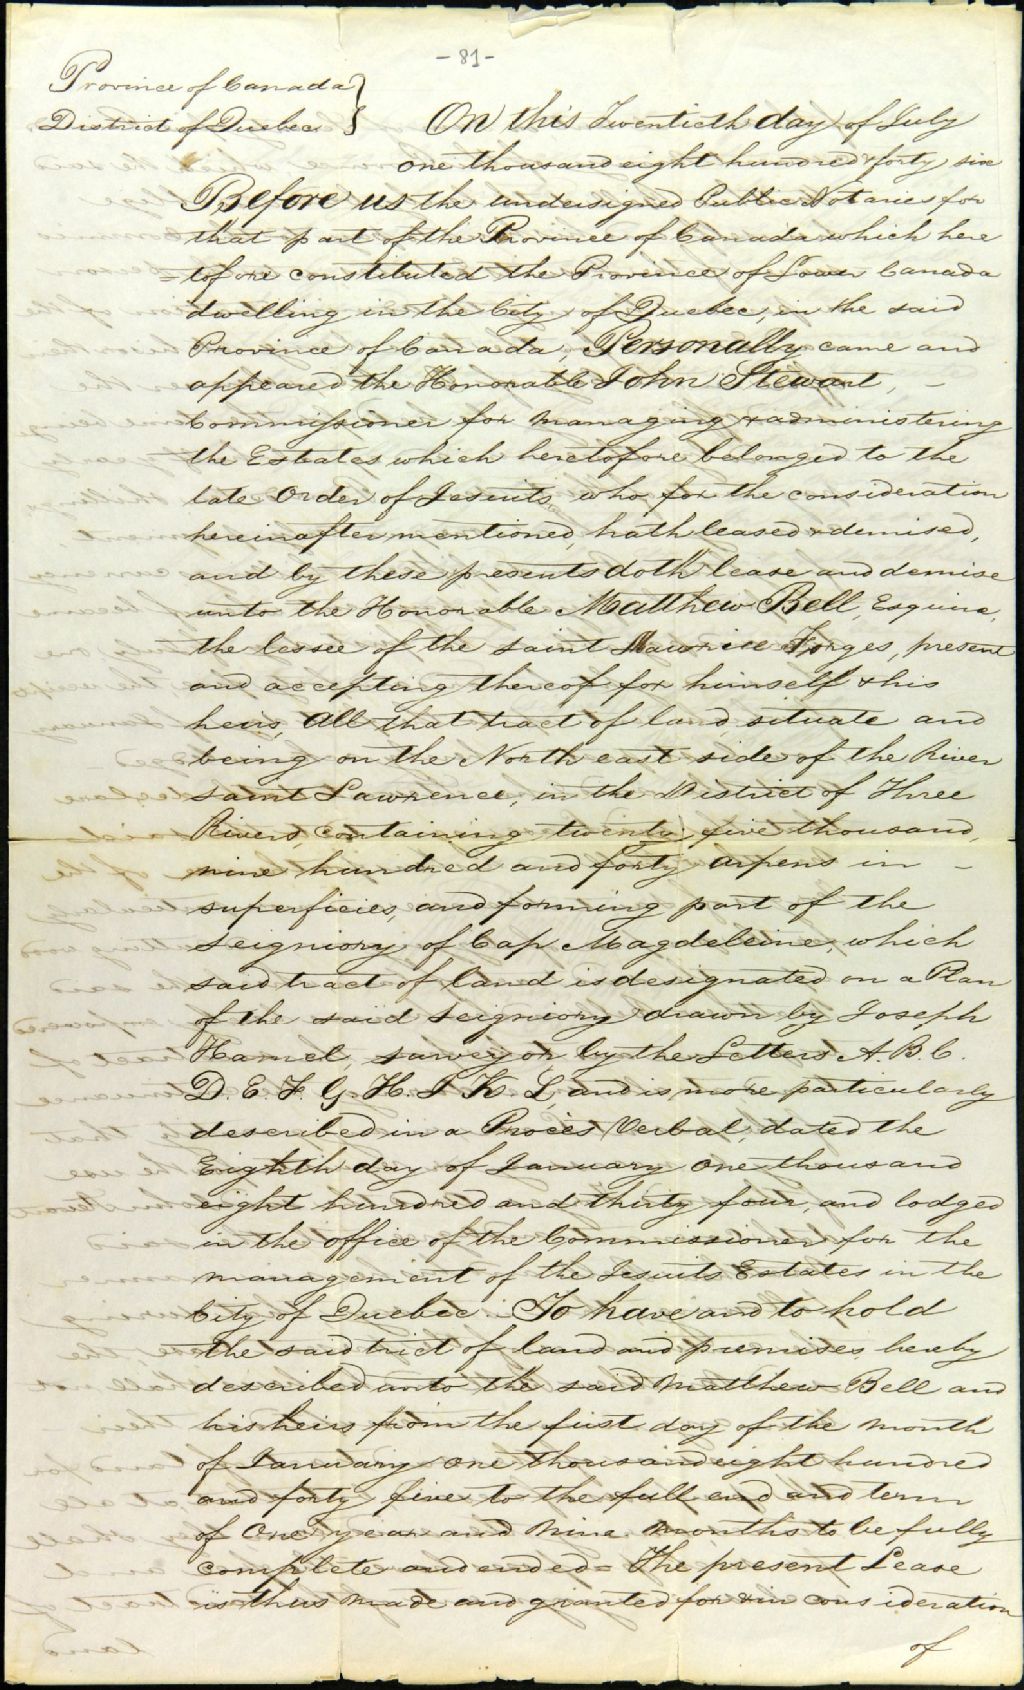 - 81 -
Province of Canada }
District of Quebec }
On this Twentieth day of July
one thousand eight hundred & forty six
Before us the undersigned Public Notaries for
that part of the Province of Canada which here
=tofore constituted the Province of Lower Canada
dwelling in the City of Quebec, in the said
Province of Canada, Personally came and
appeared the Honorable John Stewart, -
Commissioner for managing & administering
the Estates which heretofore belonged to the
late Order of Jesuits, who for the consideration
hereinafter mentioned, hath leased & demised,
and by these presents doth lease and demise
unto the Honorable Matthew Bell, Esquire,
the lessee of the Saint Maurice Forges, present
and accepting thereof for himself & his
heirs, All that tract of land situate and
being on the North east side of the River
Saint Lawrence, in the District of Three
Rivers, containing twenty five thousand,
nine hundred and forty arpens in -
superficies, and forming part of the
Seigniory of Cap Magdeleine, which
said tract of land is designated on a Plan
of the said Seigniory drawn by Joseph
Hamel, surveyor, by the Letters A. B. C.
D. E. F. G. H. I. K. L, and is more particularly
described in a Procès Verbal, dated the
Eighth day of January one thousand
eight hundred and thirty four, and lodged
in the office of the Commissioner for the
management of the Jesuits Estates in the
City of Quebec. To have and to hold
the said trict of land and premises hereby
described unto the said Matthew Bell and
his heirs from the first day of the month
of January one thousand eight hundred
and forty five to the full end and term
of One year and Nine Months to be fully
complete and ended = The present Lease
is thus made and granted for & in consideration
of